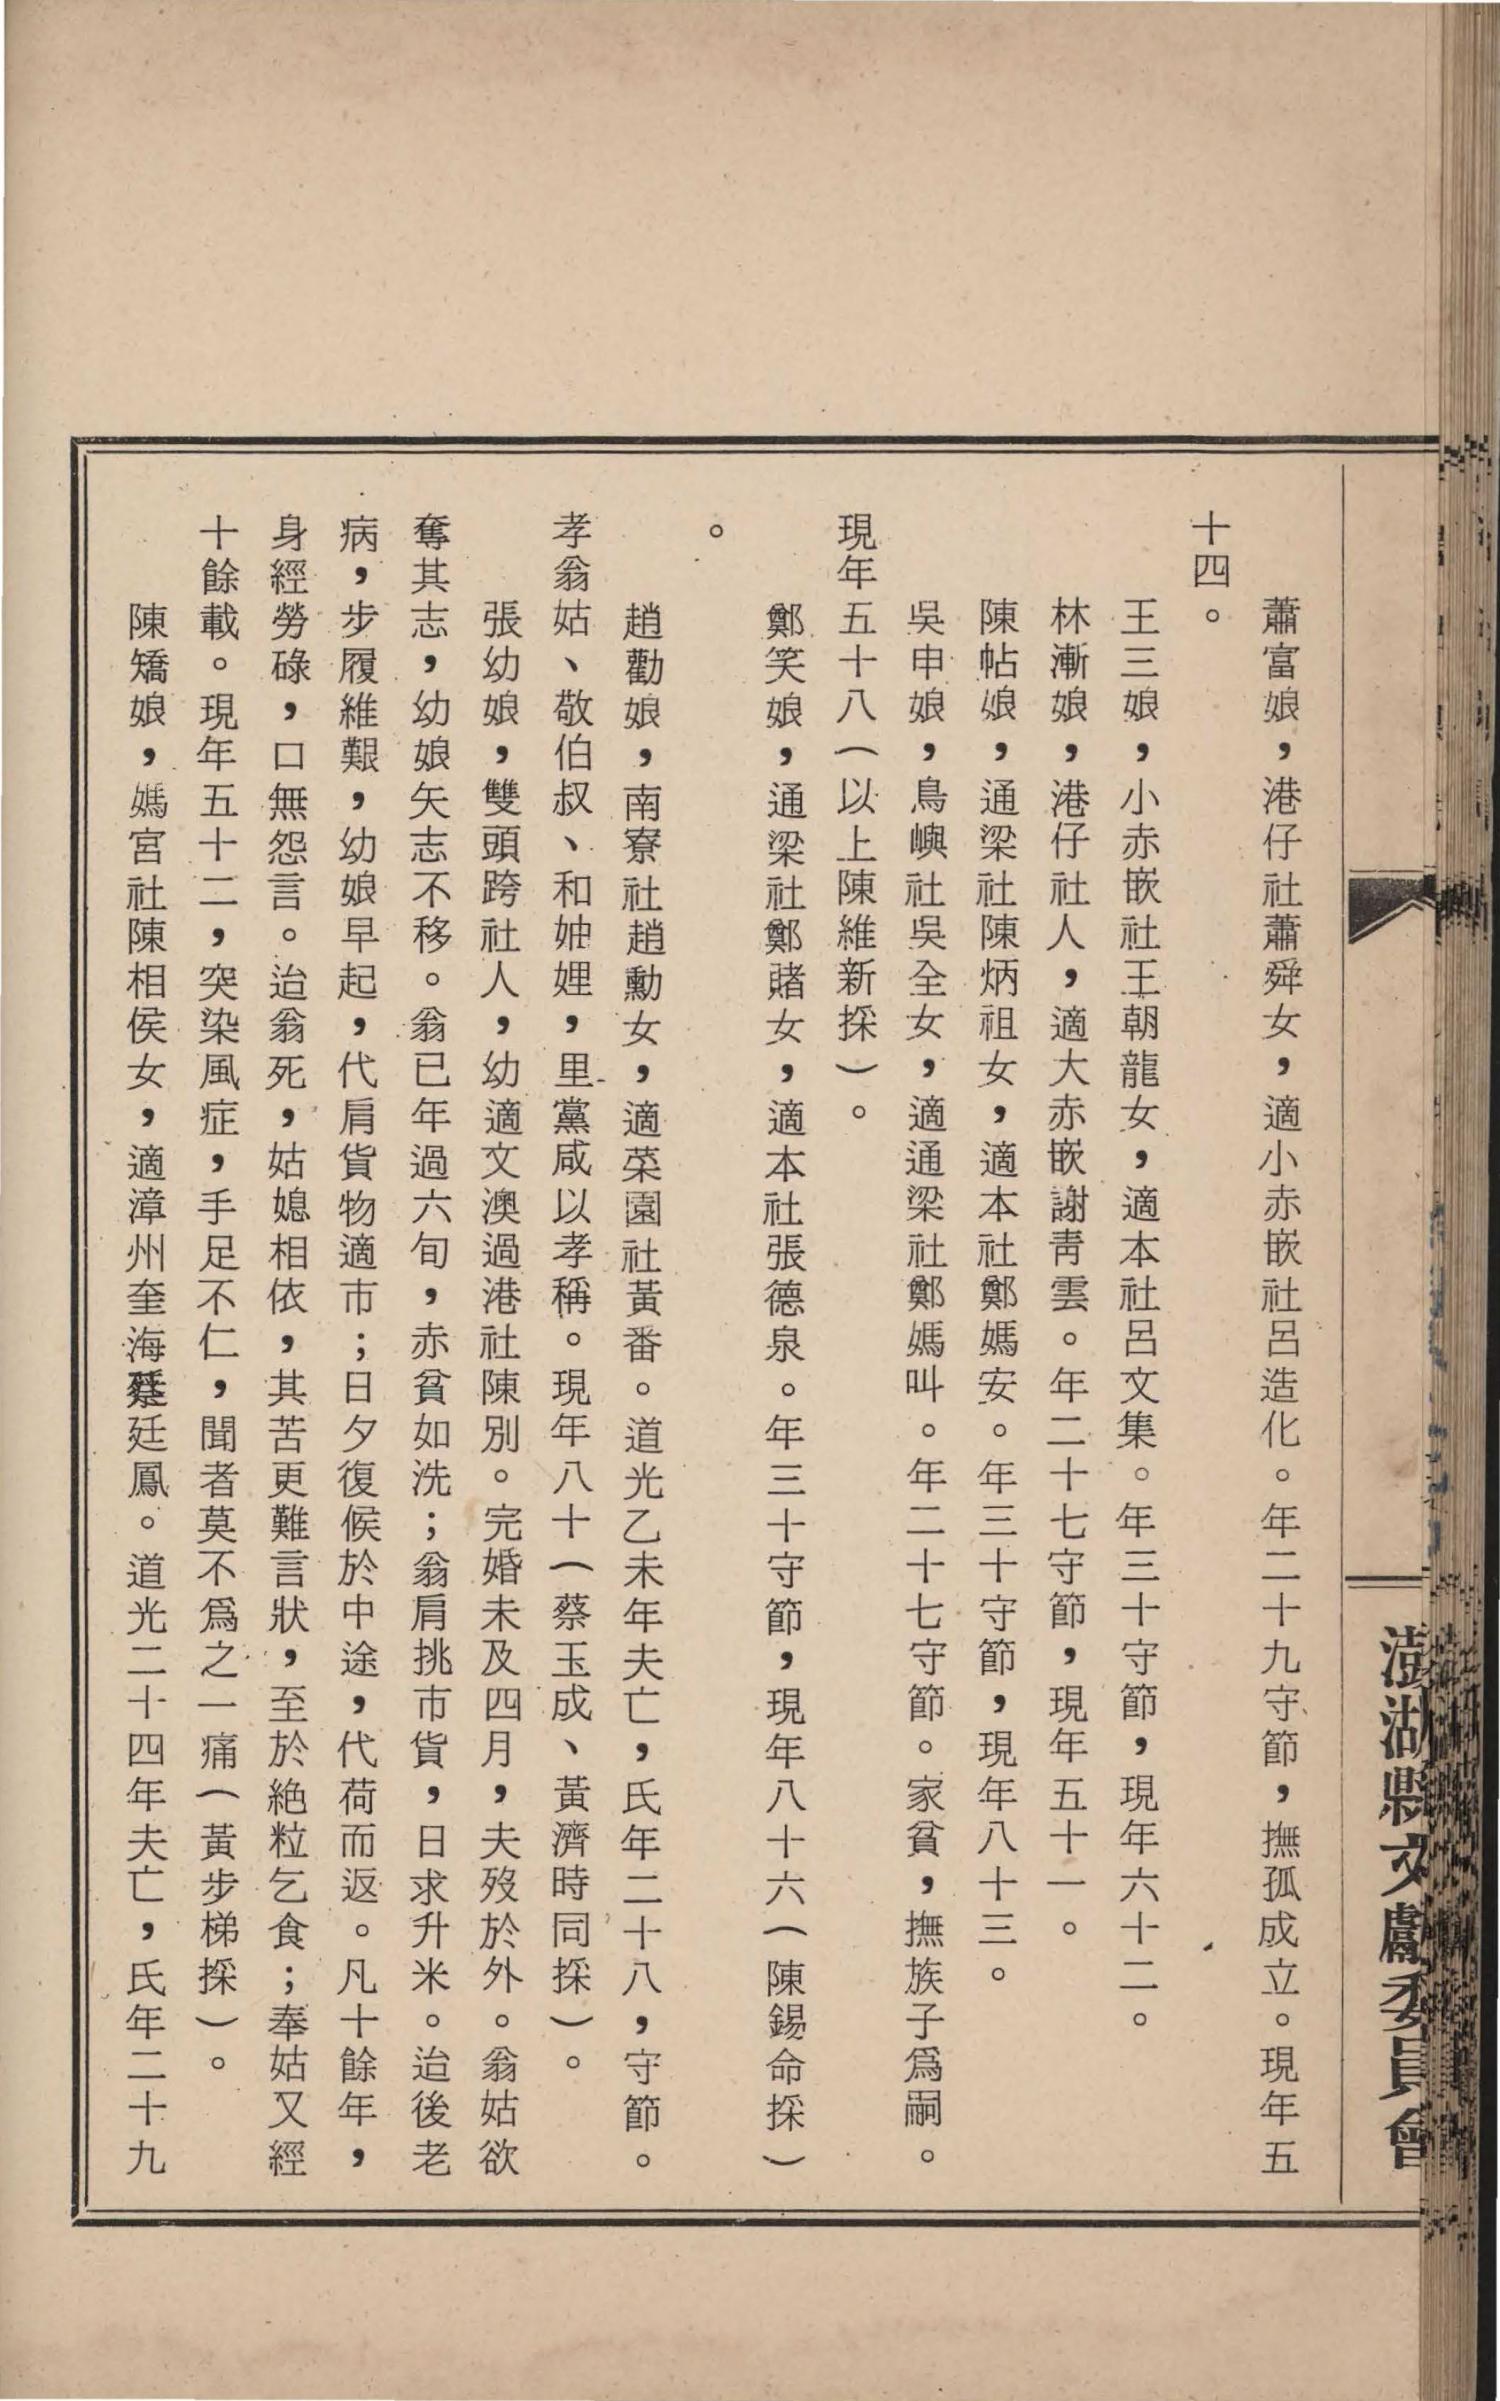 澎湖縣文獻委員會
蕭富娘，港仔社蕭舜女，適小赤嵌社呂造化。年二十九守節，撫孤成立。現年五
十四。
王三娘，小赤嵌社王朝龍女，適本社呂文集。年三十守節，現年六十二。
林漸娘，港仔社人，適大赤嵌謝靑雲。年二十七守節，現年五十一。
陳帖娘，通梁社陳炳祖女，適本社鄭媽安。年三十守節，現年八十三。
吳申娘，鳥嶼社吳全女，適通梁社鄭媽叫。年二十七守節。家貧，撫族子爲嗣。
現年五十八（以上陳維新採）。
鄭笑娘，通梁社鄭賭女，適本社張德泉。年三十守節，現年八十六（陳錫命採）
。
趙勸娘，南寮社趙勳女，適菜園社黃番。道光乙未年夫亡，氏年二十八，守節。
孝翁姑、敬伯叔、和妯娌，里黨咸以孝稱。現年八十（蔡玉成、黃濟時同採）。
張幼娘，雙頭跨社人，幼適文澳過港社陳別。完婚未及四月，夫歿於外。翁姑欲
奪其志，幼娘矢志不移。翁已年過六旬，赤貧如洗；翁肩挑市貨，日求升米。迨後老
病，步履維艱，幼娘早起，代肩貨物適市；日夕復候於中途，代荷而返。凡十餘年，
身經勞碌，口無怨言。迨翁死，姑媳相依，其苦更難言狀，至於絕粒乞食；奉姑又經
十餘載。現年五十二，突染風症，手足不仁，聞者莫不爲之一痛（黃步梯採）。
陳矯娘，媽宮社陳相侯女，適漳州奎海蔡廷鳳。道光二十四年夫亡，氏年二十九